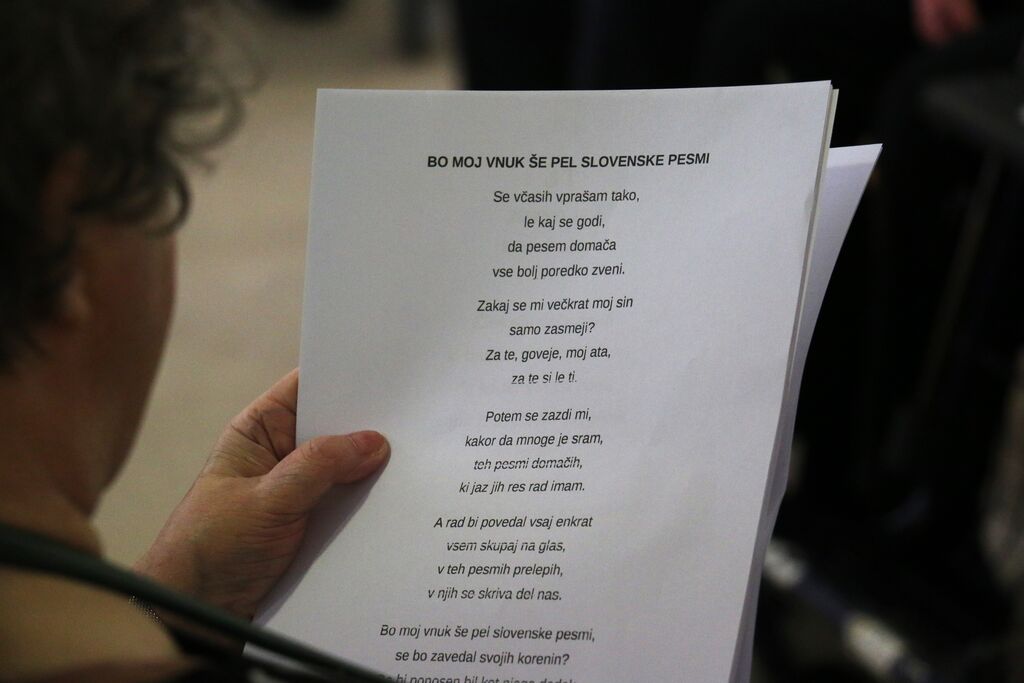 BO MOJ VNUK ŠE PEL SLOVENSKE PESMI
Se včasih vprašam tako,
le kaj se godi,
da pesem domača
vse bolj poredko zveni.
Zakaj se mi večkrat moj sin
samo zasmeji?
Za te, goveje, moj ata,
za te si le ti.
Potem se zazdi mi,
kakor da mnoge je sram,
teh pesmi domačih,
ki jaz jih res rad imam.
A rad bi povedal vsaj enkrat
vsem skupaj na glas,
v teh pesmih prelepih,
v njih se skriva del nas.
Bo moj vnuk še pel slovenske pesmi,
se bo zavedal svojih korenin?
bi ponosen bil kot njega dedek